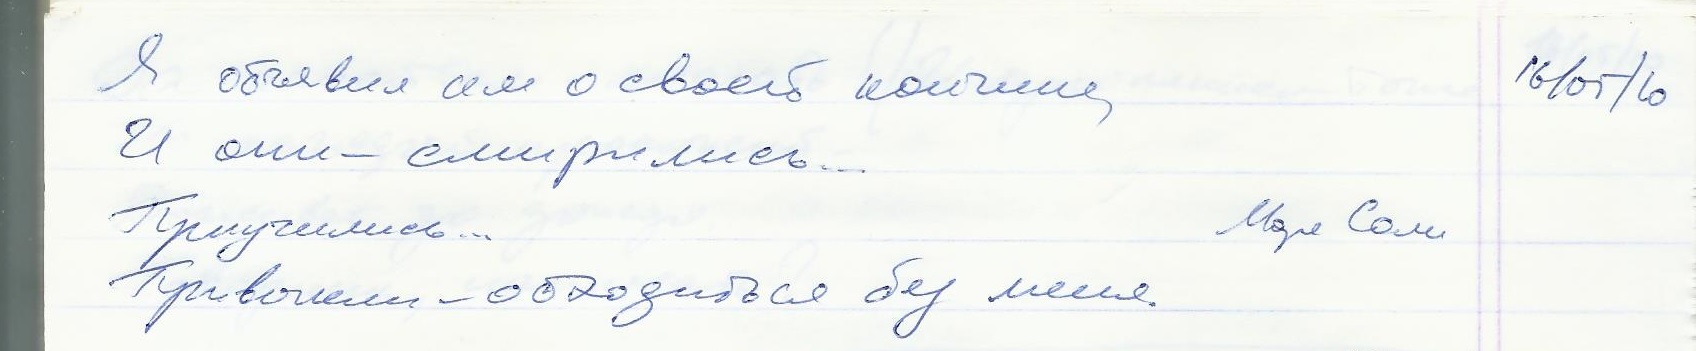 Я объявил им о своей кончине,
16/05/10
И они – смирились...
Приучились...
Море Соли
Привыкли – обходиться без меня.